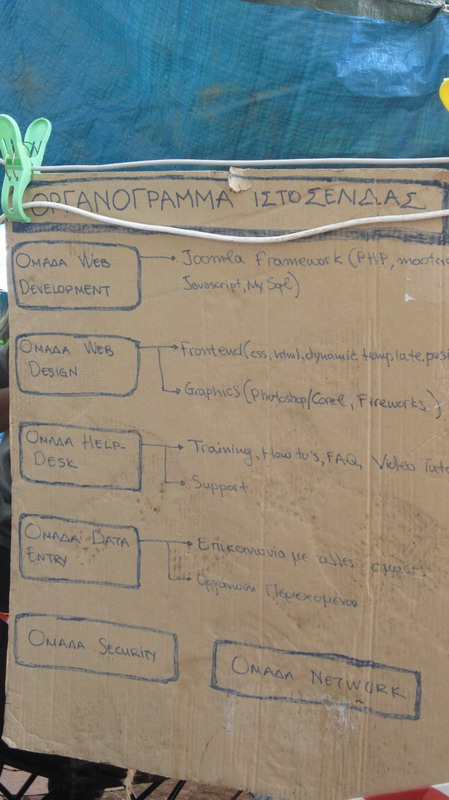 ΟΡΓΑΝΟΓΡΑΜΜΑ ΙΣΤΟΣΕΛΙΔΑΣ
ΟΜΑΔΑ WEB DEVELOPMENT
Joomla framework (PHP, mootools
Javascript, My Sql)
ΟΜΑΔΑ WEB DESIGN
Frontend (css, html, dynamic template.posi
Graphics (Photoshop/Corel, Fireworks)
ΟΜΑΔΑ HELP-DESK
Training, How to's, FAQ, Video Tuto
Support
ΟΜΑΔΑ DATA ENTRY
Επικοινωνία με άλλες ομάδες
Οργάνωση Περιεχομένου
ΟΜΑΔΑ SECURITY
ΟΜΑΔΑ NETWORK